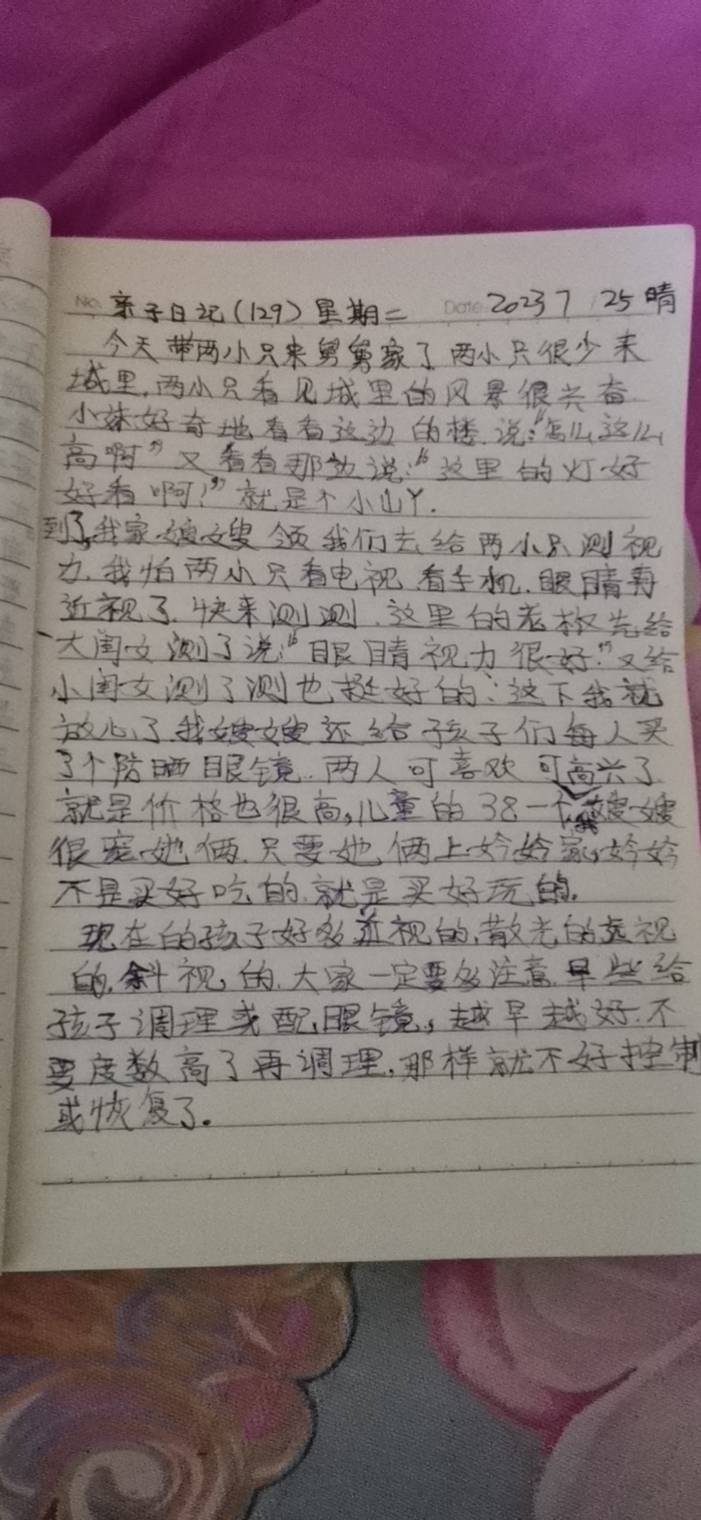 No. 亲子日记(129)星期二 Date 2023 7 25 晴
今天带两小只来舅舅家了两小只很少来
城里,两小只看见城里的风景很兴奋
小妹好奇地看看这边的楼说:“怎么这么
高啊”又看看那边说:“这里的灯好
好看啊!”就是个小山丫.
到了我家嫂嫂领我们去给两小只测视
力.我怕两小只看电视.看手机.眼睛再
近视了.快来测测.这里的老板先给
大闺女测了说:“眼睛视力很好.”又给
小闺女测了测也挺好的;这下我就
放心了我嫂嫂还给孩子们每人买
了个防晒眼镜.两人可喜欢可高兴了.
就是价格也很高,儿童的38一个,嫂嫂
很宠她俩.只要她俩上妗妗家,妗妗
不是买好吃的.就是买好玩的.
现在的孩子好多近视的,散光的远视
的,斜视的.大家一定要多注意.早些给
孩子调理或配眼镜,越早越好.不
要度数高了再调理.那样就不好控制
或恢复了.